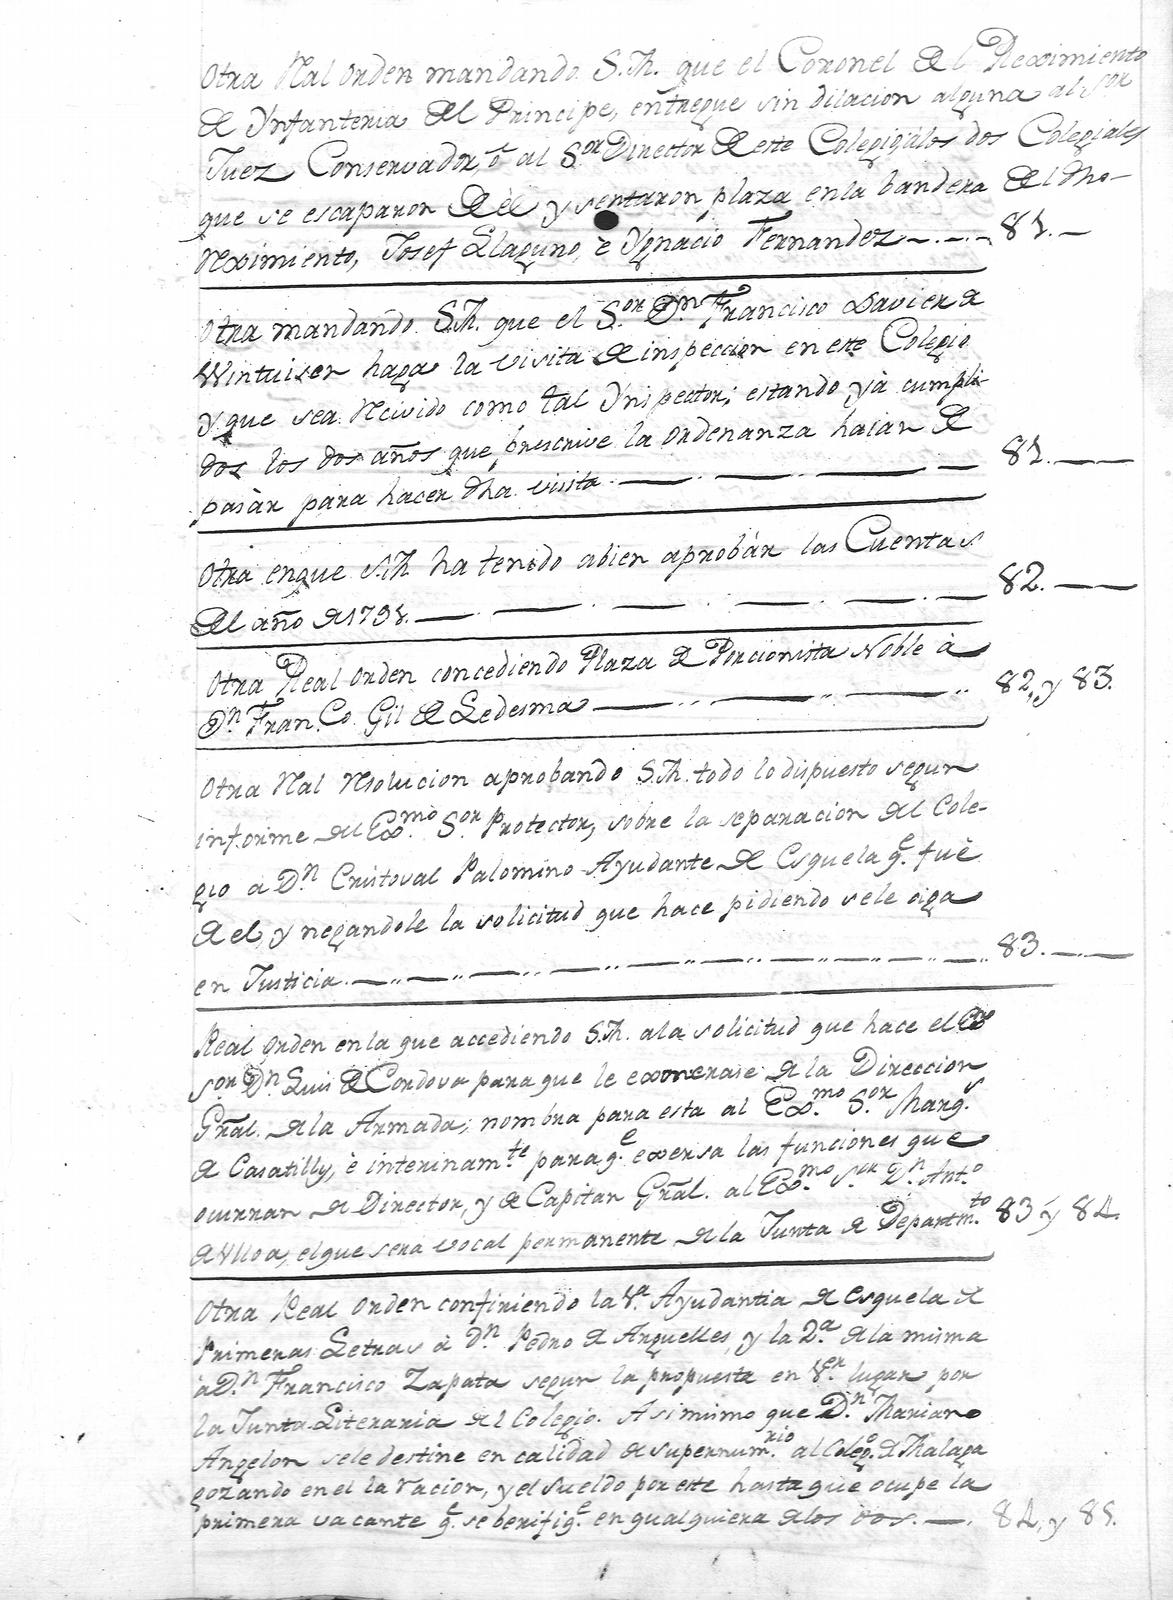 Otra Rl. orden mandando S.M. que el Coronel del Reximiento
de Ynfanteria del Principe, entregue sin dilacion alguna al Sor
Juez Conservador, ó al Sor Director de este Colegio, á los dos Colegiales
que se escaparon de él y sentaron plaza en la bandera del dho
Reximiento, Josef Llaguno, è Ygnacio Fernandez 81.
Otra mandando S.M. que el Sor Dn Francisco Xavier de
Wintuisen haga la visita de inspeccion en este Colegio
y que sea Recivido como tal Ynspector; estando yà cumpli-
dos los dos años que prescrive la ordenanza haian de
pasàr para hacer dha. visita 81.
Otra en que S.M. ha tenido abien aprobàr las Cuentas
del año de 1791. 82.
Otra Real orden concediendo Plaza de Porcionista Noble à
Dn. Fran.Co Gil de Ledesma 82, y 83.
Otra Real Resolucion aprobando S.M. todo lo dispuesto segun
informe del Exmo. Sor Protector, sobre la separacion del Cole-
gio a Dn Cristoval Palomino Ayudante de Esquela qe. fuè
de el, y negandole la solicitud que hace pidiendo sele oiga
en Justicia 83.
Real orden en la que accediendo S.M. ala solicitud que hace el Exmo
Sor Dn. Luis de Cordova para que le exonerase de la Direccion
Gral. de la Armada, nombra para esta al Exmo. Sor Marqs.
de Casatilly, è interinamte. para qe. exersa las funciones que
ocurran de Director, y de Capitan Gral. al Exmo. Sor Dn. Anto.
de Ulloa, el que será vocal permanente de la Junta de Departmto. 83 y 84.
Otra Real orden confiriendo la 1a. Ayudantia de Esquela de
Primeras Letras à Dn Pedro de Arguelles, y la 2a. de la misma
à Dn. Francisco Zapata segun la propuesta en 1er. lugar por
la Junta Literaria del Colegio. Asi mismo que Dn. Mariano
Angelon sele destine en calidad de supernumrio. al Colego. de Malaga
gozando en el la racion, y el sueldo por este hasta que ocupe la
primera vacante qe. se berifiqe. en qualquiera delos dos. 84, y 85.